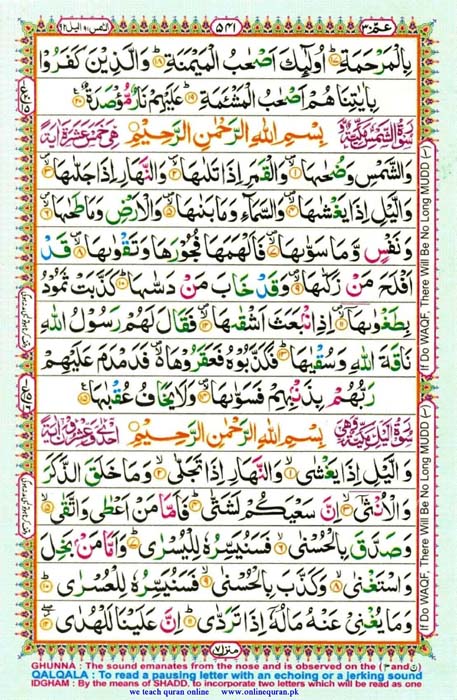 عَمَّ ٣٠ ٥٤١ الشمس ٩١ اليل ٩٢
بِالْمَرْحَمَةِؕ‏﴿۱۷﴾ اُولٰٓئِكَ اَصْحٰبُ الْمَيْمَنَةِؕ‏﴿۱۸﴾ وَالَّذِيْنَ كَفَرُوْا
بِاٰيٰتِنَا هُمْ اَصْحٰبُ الْمَشْئَمَةِؕ‏﴿۱۹﴾ عَلَيْهِمْ نَارٌ مُّؤْصَدَةٌ‏﴿۲۰﴾
سُوْرَةُ الشَّمْسِ مَكِّيَّةٌ بِسْمِ اللّٰهِ الرَّحْمٰنِ الرَّحِيْمِ هِيَ خَمْسَ عَشْرَةَ اٰيَةً
وَالشَّمْسِ وَضُحٰىهَا‏﴿۱﴾ وَالْقَمَرِ اِذَا تَلٰىهَا‏﴿۲﴾ وَالنَّهَارِ اِذَا جَلّٰىهَا‏﴿۳﴾
وَالَّيْلِ اِذَا يَغْشٰىهَا‏﴿۴﴾ وَالسَّمَآءِ وَمَا بَنٰىهَا‏﴿۵﴾ وَالْاَرْضِ وَمَا طَحٰىهَا‏﴿۶﴾
وَنَفْسٍ وَّمَا سَوّٰىهَا‏﴿۷﴾ فَاَلْهَمَهَا فُجُوْرَهَا وَتَقْوٰىهَا‏﴿۸﴾ قَدْ
اَفْلَحَ مَنْ زَكّٰىهَا‏﴿۹﴾ وَقَدْ خَابَ مَنْ دَسّٰىهَا‏﴿۱۰﴾ كَذَّبَتْ ثَمُوْدُ
بِطَغْوٰىهَا‏﴿۱۱﴾ اِذِ انْۢبَعَثَ اَشْقٰىهَا‏﴿۱۲﴾ فَقَالَ لَهُمْ رَسُوْلُ اللّٰهِ
نَاقَةَ اللّٰهِ وَسُقْيٰهَا‏﴿۱۳﴾ فَكَذَّبُوْهُ فَعَقَرُوْهَا فَدَمْدَمَ عَلَيْهِمْ
رَبُّهُمْ بِذَنْۢبِهِمْ فَسَوّٰىهَا‏﴿۱۴﴾ وَلَا يَخَافُ عُقْبٰهَا‏﴿۱۵﴾
سُوْرَةُ الَّيْلِ مَكِّيَّةٌ وَّهِيَ بِسْمِ اللّٰهِ الرَّحْمٰنِ الرَّحِيْمِ اِحْدٰى وَعِشْرُوْنَ اٰيَةً
وَالَّيْلِ اِذَا يَغْشٰى‏﴿۱﴾ وَالنَّهَارِ اِذَا تَجَلّٰى‏﴿۲﴾ وَمَا خَلَقَ الذَّكَرَ
وَالْاُنْثٰٓى‏﴿۳﴾ اِنَّ سَعْيَكُمْ لَشَتّٰى‏﴿۴﴾ فَاَمَّا مَنْ اَعْطٰى وَاتَّقٰى‏﴿۵﴾
وَصَدَّقَ بِالْحُسْنٰى‏﴿۶﴾ فَسَنُيَسِّرُهٗ لِلْيُسْرٰى‏﴿۷﴾ وَاَمَّا مَنْۢ بَخِلَ
وَاسْتَغْنٰى‏﴿۸﴾ وَكَذَّبَ بِالْحُسْنٰى‏﴿۹﴾ فَسَنُيَسِّرُهٗ لِلْعُسْرٰى‏﴿۱۰﴾
وَمَا يُغْنِيْ عَنْهُ مَالُهٗٓ اِذَا تَرَدّٰى‏﴿۱۱﴾ اِنَّ عَلَيْنَا لَلْهُدٰى‏﴿۱۲﴾
منزل ٧
If Do WAQF, There Will Be No Long MUDD (~)
If Do WAQF, There Will Be No Long MUDD (~)
GHUNNA : The sound emanates from the nose and is observed on the (ن and م)
QALQALA : To read a pausing letter with an echoing or a jerking sound
IDGHAM : By the means of SHADD, to incorporate two letters which will be read as one
we teach quran online www.onlinequran.pk